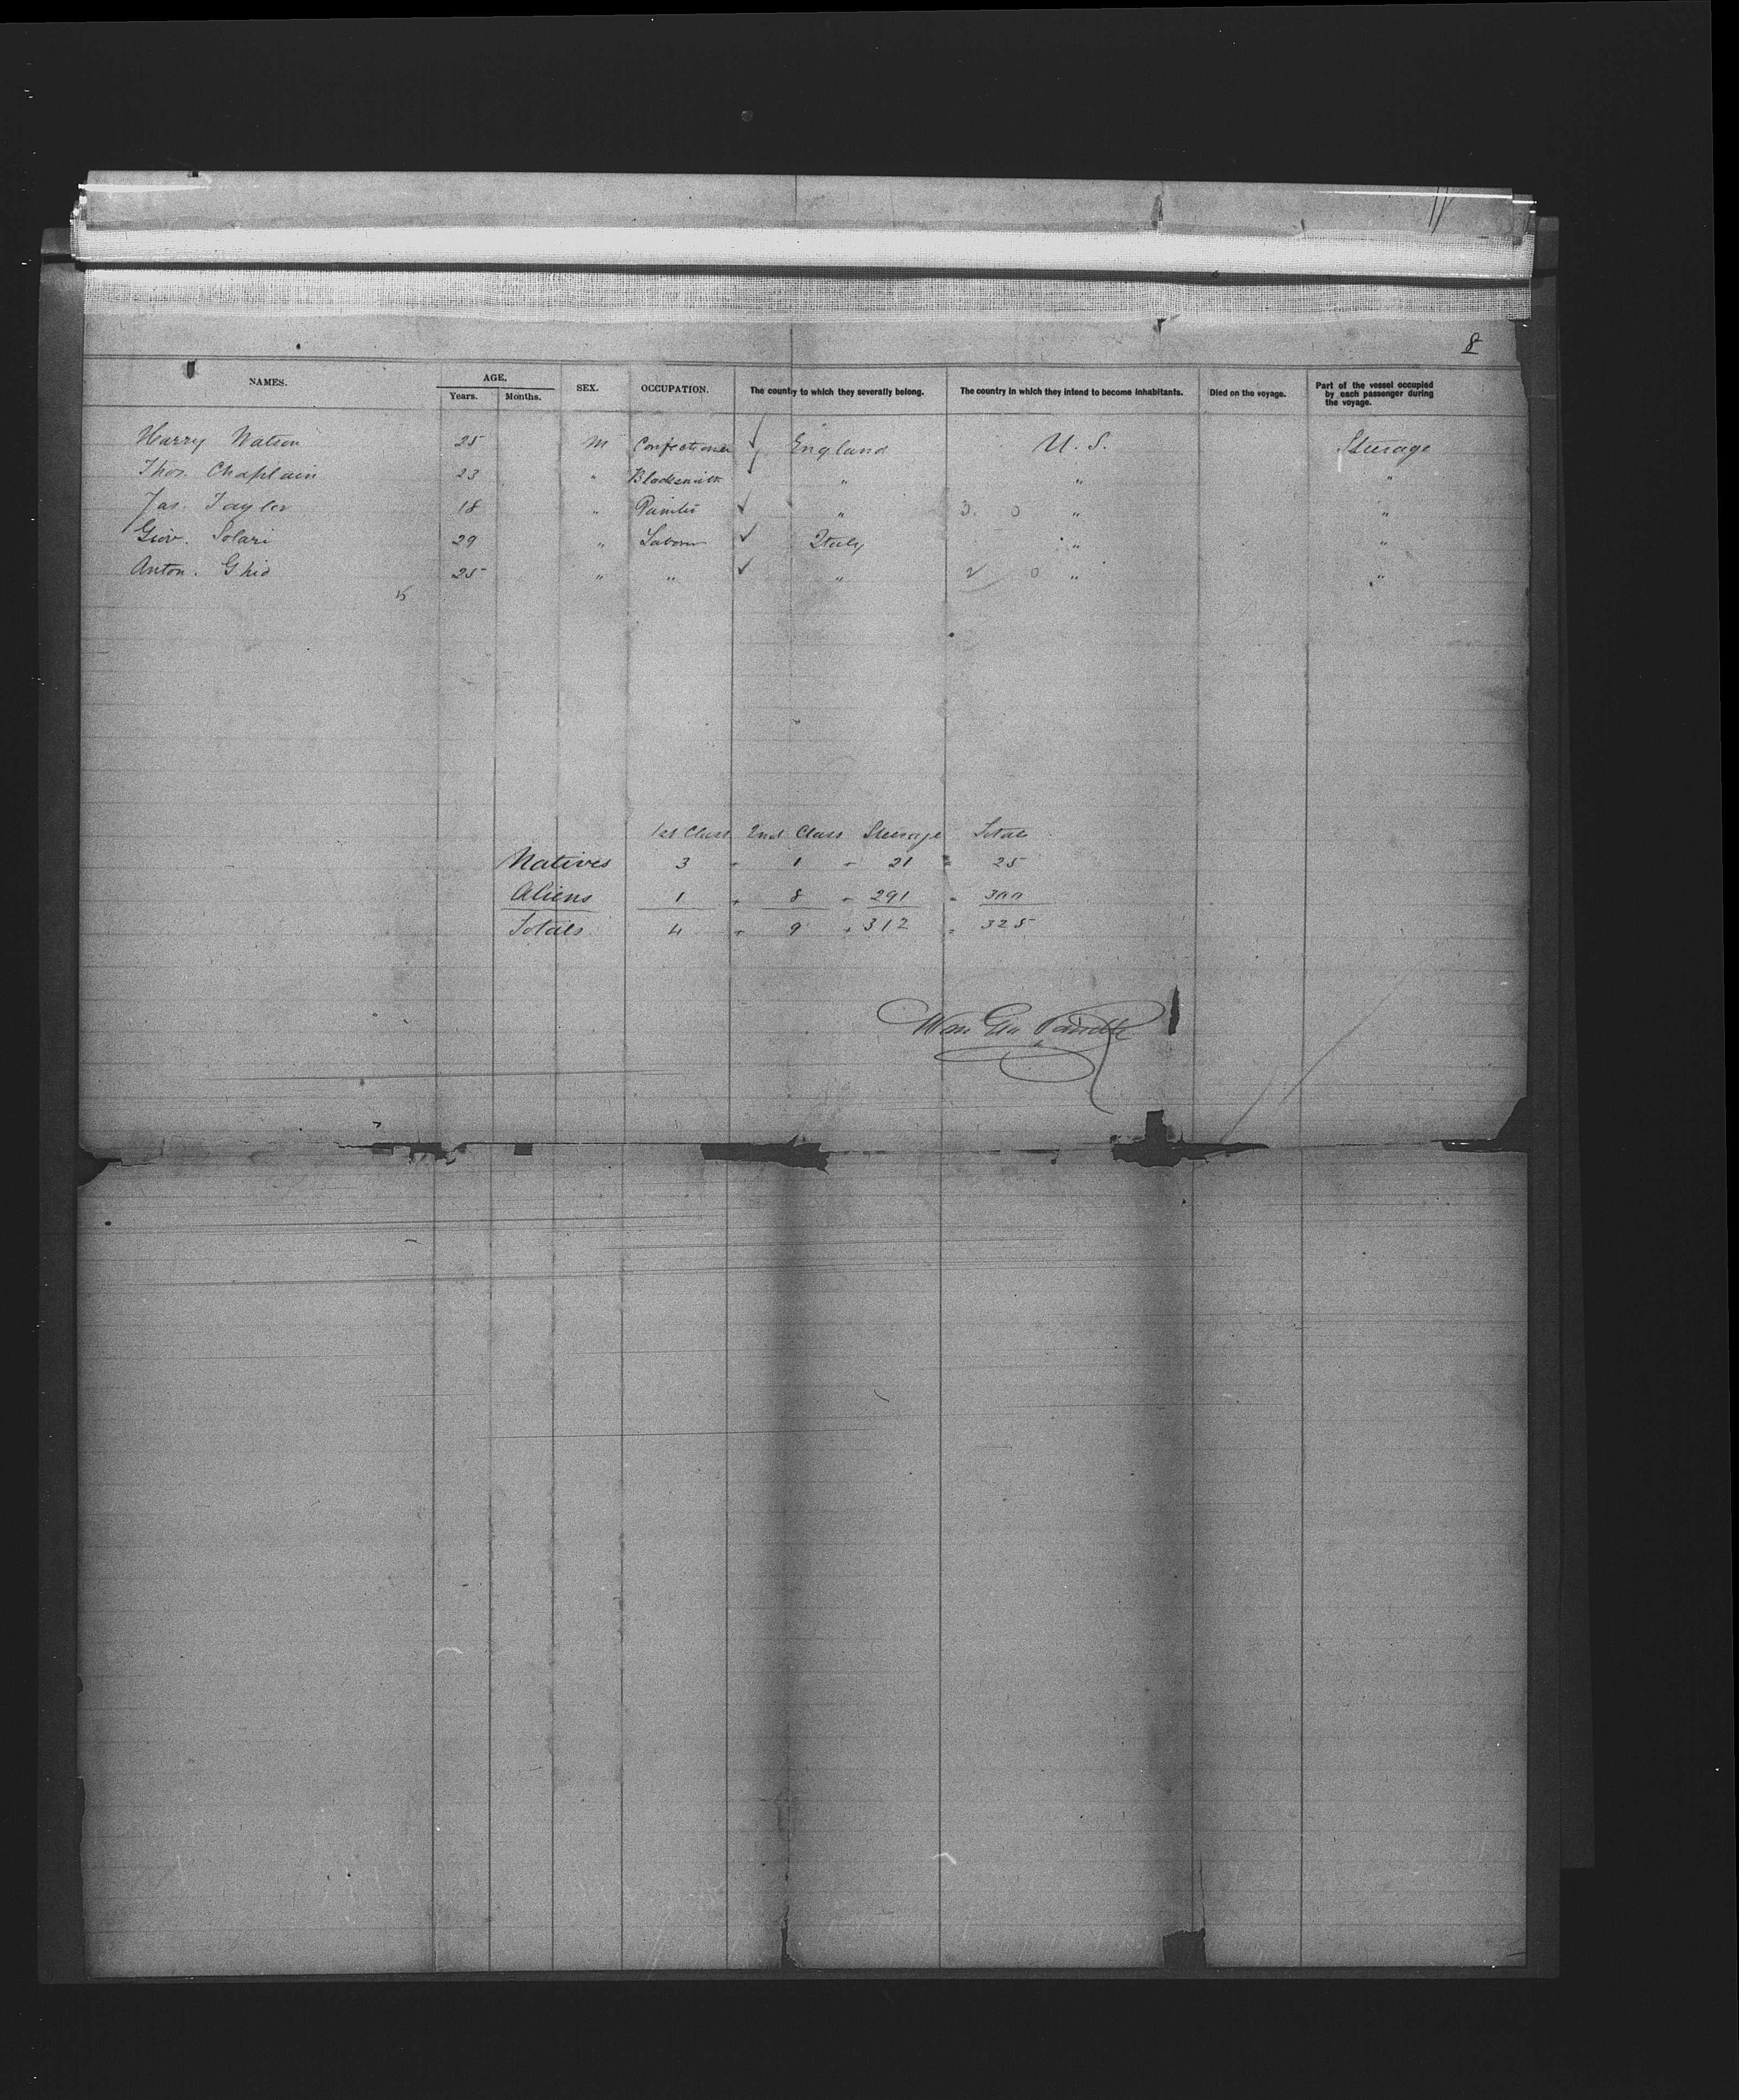 8
NAMES. AGE. SEX. OCCUPATION. The country to which they severally belong. The country in which they intend to become inhabitants. Died on the voyage. Part of the vessel occupied by each passenger during the voyage.
Years. Months.
Harry Watson 25 M Confectioner England U.S. Steerage
Thos. Chaplain 23 " Blacksmith " " "
Jas. Taylor 18 " Painter " 3. 0 " "
Giov. Solari 29 " Labour Italy " "
Anton. Ghio 25 " " " 2 0 " "
15
1st Class 2nd Class Steerage Totals
Natives 3 - 1 - 21 = 25
Aliens 1 - 8 - 291 = 300
Totals 4 - 9 - 312 = 325
Wm Geo